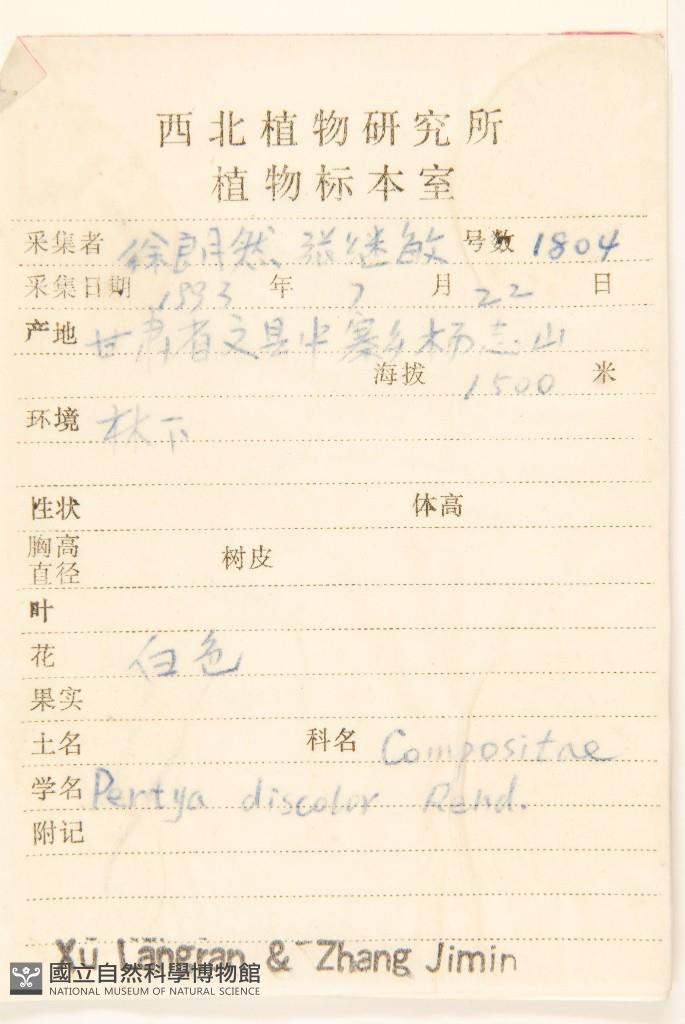 西北植物研究所
植物标本室
采集者 徐朗然 张继敏 号数 1804
采集日期 1993 年 7 月 22 日
产地 甘肃省文县中寨乡 山
海拔 1500 米
环境 林下
性状 体高
胸高直径 树皮
叶
花 白色
果实
土名 科名 Compositae
学名 Pertya discolor Rehd.
附记
Xu Langran & Zhang Jimin
國立自然科學博物館
NATIONAL MUSEUM OF NATURAL SCIENCE